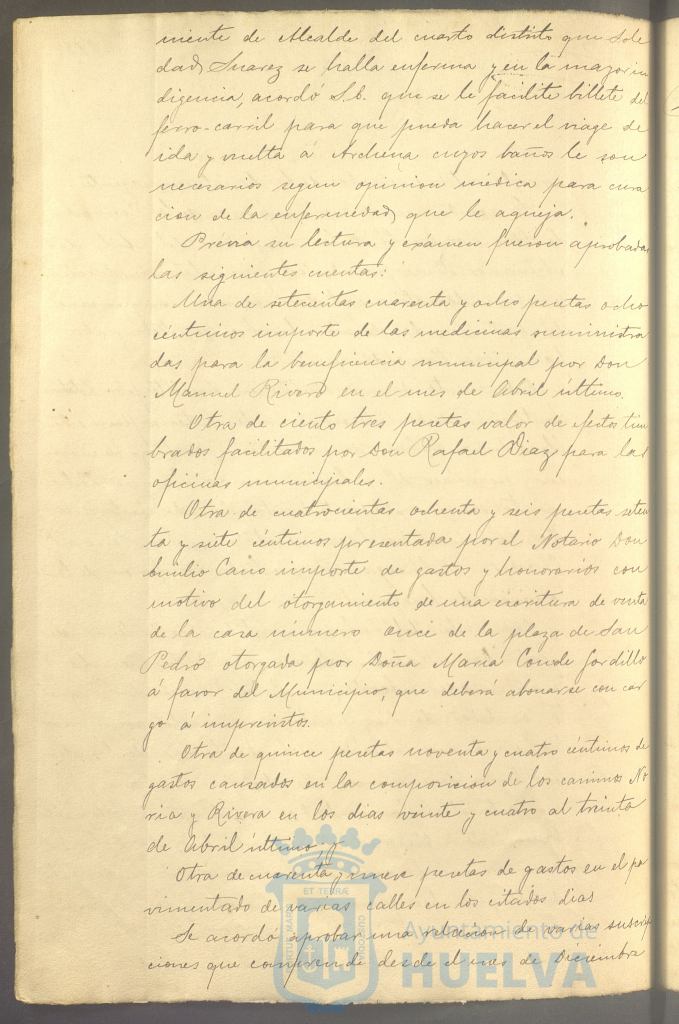 niente de Alcalde del cuarto distrito que Sole
dad Suarez se halla enferma y en la mayor in
digencia, acordó S.E. que se le facilite billete del
ferro-carril para que pueda hacer el viage de
ida y vuelta á Archena cuyos baños le son
necesarios segun opinion médica para cura
cion de la enfermedad que le aqueja.
Prévia su lectura y exámen fueron aprobadas
las siguientes cuentas:
Una de setecientas cuarenta y ocho pesetas ocho
céntimos importe de las medicinas suministra
das para la beneficencia municipal por Don
Manuel Rivero en el mes de Abril último.
Otra de ciento tres pesetas valor de efectos tim
brados facilitados por Don Rafael Diaz para las
oficinas municipales.
Otra de cuatrocientas ochenta y seis pesetas seten
ta y siete céntimos presentada por el Notario Don
Emilio Cano importe de gastos y honorarios con
motivo del otorgamiento de una escritura de venta
de la casa número once de la plaza de San
Pedro otorgada por Doña Maria Conde Gordillo
á favor del Municipio, que deberá abonarse con car
go á imprevistos.
Otra de quince pesetas noventa y cuatro céntimos de
gastos causados en la composicion de los caminos No
ria y Rivera en los dias veinte y cuatro al treinta
de Abril último, y
Otra de cuarenta y nueve pesetas de gastos en el pa
vimentado de varias calles en los citados dias
Se acordó aprobar una relacion de varias suscrip
ciones que comprende desde el mes de Diciembre
Ayuntamiento de
HUELVA